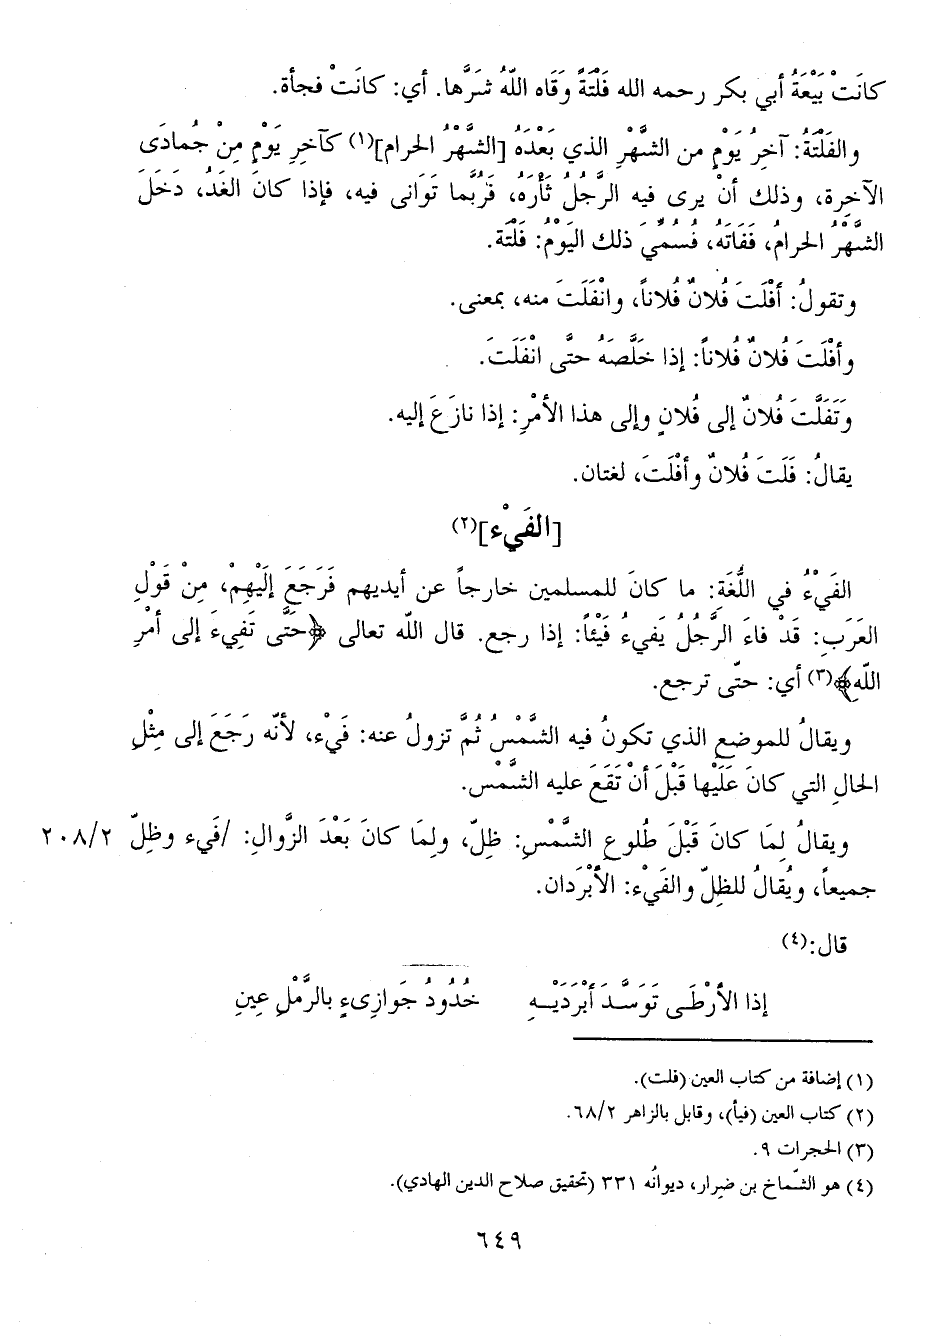 كانَتْ بَيْعَةُ أبي بكر رحمه الله فَلْتَةً وَقَاه اللّهُ شَرَّها. أي: كانَتْ فجأة.
والفَلْتَةُ: آخِرُ يَوْمٍ من الشَّهْرِ الذي بَعْدَهُ [الشَّهْرُ الحرام](١) كآخِرِ يَوْمٍ مِنْ جُمادَى
الآخِرة، وذلك أنْ يرى فيه الرَّجُلُ ثَأْرَهُ، فَرُبَّما تَوَانى فيه، فإذا كانَ الغَدُ، دَخَلَ
الشَّهْرُ الحرامُ، فَفَاتَه، فَسُمِّيَ ذلك اليَوْمُ: فَلْتَة.
وتقولُ: أفْلَتَ فُلانٌ فُلاناً، وانْفَلَتَ منه، بمعنى.
وأفْلَتَ فُلانٌ فُلاناً: إذا خَلَّصَهُ حتَّى انْفَلَتَ.
وَتَفَلَّتَ فُلانٌ إلى فُلانٍ وإلى هذا الأمْرِ: إذا نازَعَ إليه.
يقالُ: فَلَتَ فُلانٌ وأفْلَتَ، لغتان.
[الفَيْء](٢)
الفَيْءُ في اللُّغَةِ: ما كانَ للمسلمين خارجاً عن أيديهم فَرَجَعَ إلَيْهِمْ، مِنْ قَوْلِ
العَرَبِ: قَدْ فاءَ الرَّجُلُ يَفيءُ فَيْئاً: إذا رجع. قال اللّه تعالى ﴿حَتَّى تَفِيءَ إلى أمْرِ
اللّهِ﴾(٣) أي: حتّى ترجع.
ويقالُ للموضع الذي تكونُ فيه الشَّمْسُ ثُمَّ تزولُ عنه: فَيْء، لأنّه رَجَعَ إلى مِثْلِ
الحالِ التي كانَ عَلَيْها قَبْلَ أنْ تَقَعَ عليه الشَّمْس.
ويقالُ لِمَا كانَ قَبْلَ طُلوعِ الشَّمْسِ: ظِلّ، ولِمَا كانَ بَعْدَ الزَّوالِ: /فَيء وظِلّ ٢٠٨/٢
جميعاً، ويُقالُ للظِلّ والفَيْء: الأَبْرَدان.
قال:(٤)
إذا الأرْطَى تَوَسَّدَ أبْرَدَيْـهِ خُدُودُ جَوازِىءٍ بالرَّمْلِ عِينِ
(١) إضافة من كتاب العين (فلت).
(٢) كتاب العين (فيأ)، وقابل بالزاهر ٦٨/٢.
(٣) الحجرات ٩.
(٤) هو الشّماخ بن ضِرار، ديوانُه ٣٣١ (تحقيق صلاح الدين الهادي).
٦٤٩